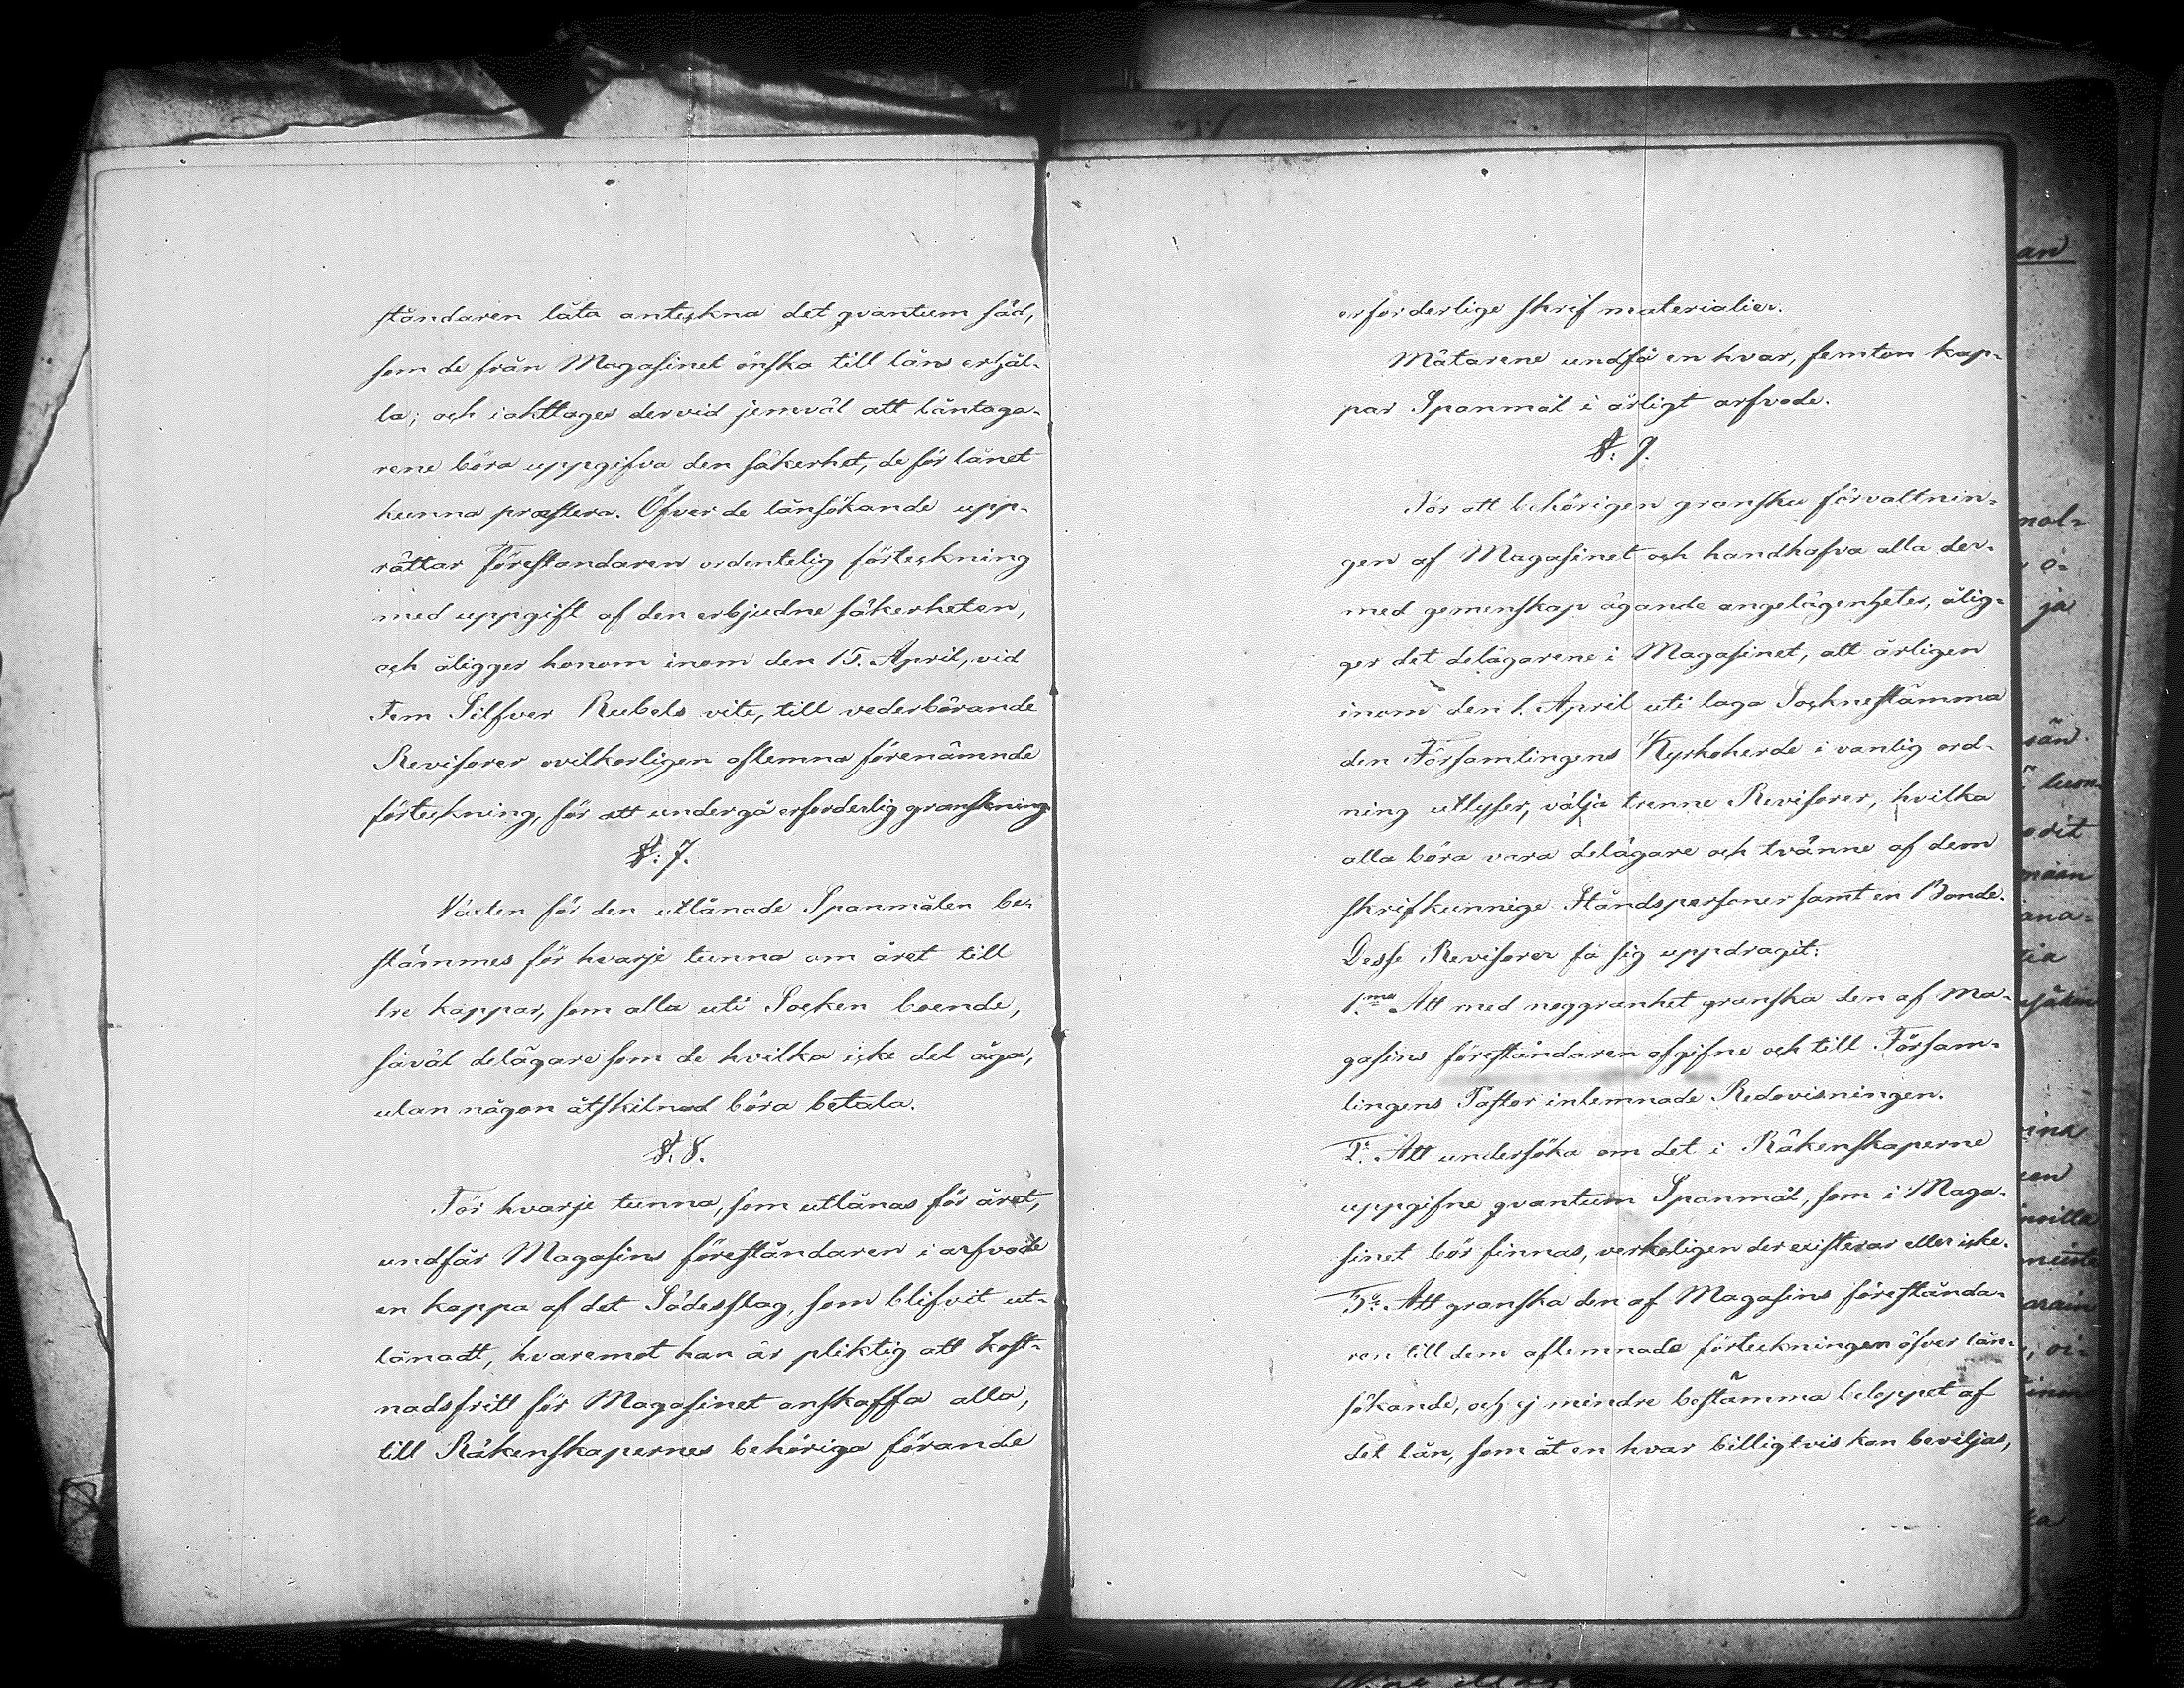 ståndaren låta anteckna det qvantum säd,
som de från Magasinet önska till låns erhål-
la; och iakttages dervid jemväl att låntaga-
rene böra uppgifva den säkerhet, de för lånet
kunna præstera. Öfver de lånsökande upp-
rättar Föreståndaren ordentelig förteckning
med uppgift af den erbjudne säkerheten,
och åligger honom inom den 15. April, vid
Fem Silfver Rubels vite, till vederbörande
Revisorer ovilkorligen aflemna förenämnde
förteckning, för att undergå erforderlig granskning.
§. 7.
Växten för den utlånade Spanmålen be-
stämmes för hvarje tunna om året till
tre kappar, som alla uti Socken boende,
såväl delägare som de hvilka icke del äga,
utan någon åtskilnad böra betala.
§. 8.
För hvarje tunna, som utlånas för året,
undfår Magasins föreståndaren i arfvode
en kappa af det Sädesslag, som blifvit ut-
lånadt, hvaremot han är pliktig att kost-
nadsfritt för Magasinet anskaffa alla,
till Räkenskapernes behöriga förande
erforderlige skrifmaterialier.
Mätarene undfå en hvar, femton kap-
par Spanmål i årligt arfvode.
§. 9.
För att behörigen granska förvaltnin-
gen af Magasinet och handhafva alla der-
med gemenskap ägande angelägenheter, ålig-
ger det delägarene i Magasinet, att årligen
inom den 1. April uti laga Socknestämma
den Församlingens Kyrkoherde i vanlig ord-
ning utlyser, välja trenne Revisorer, hvilka
alla böra vara delägare och tvänne af dem
skrifkunnige Ståndspersoner samt en Bonde.
Desse Revisorer få sig uppdragit:
1.mo Att med noggranhet granska den af Ma-
gasins föreståndaren afgifne och till Försam-
lingens Taflor inlemnade Redovisningen.
2:o Att undersöka om det i Räkenskaperne
uppgifne qvantum Spanmål, som i Maga-
sinet bör finnas, verkeligen der existerar eller icke.
3:o Att granska den af Magasins förestånda-
ren till dem aflemnade förteckningen öfver lån-
sökande, och ej mindre bestämma beloppet af
det lån, som åt en hvar billigtvis kan beviljas,